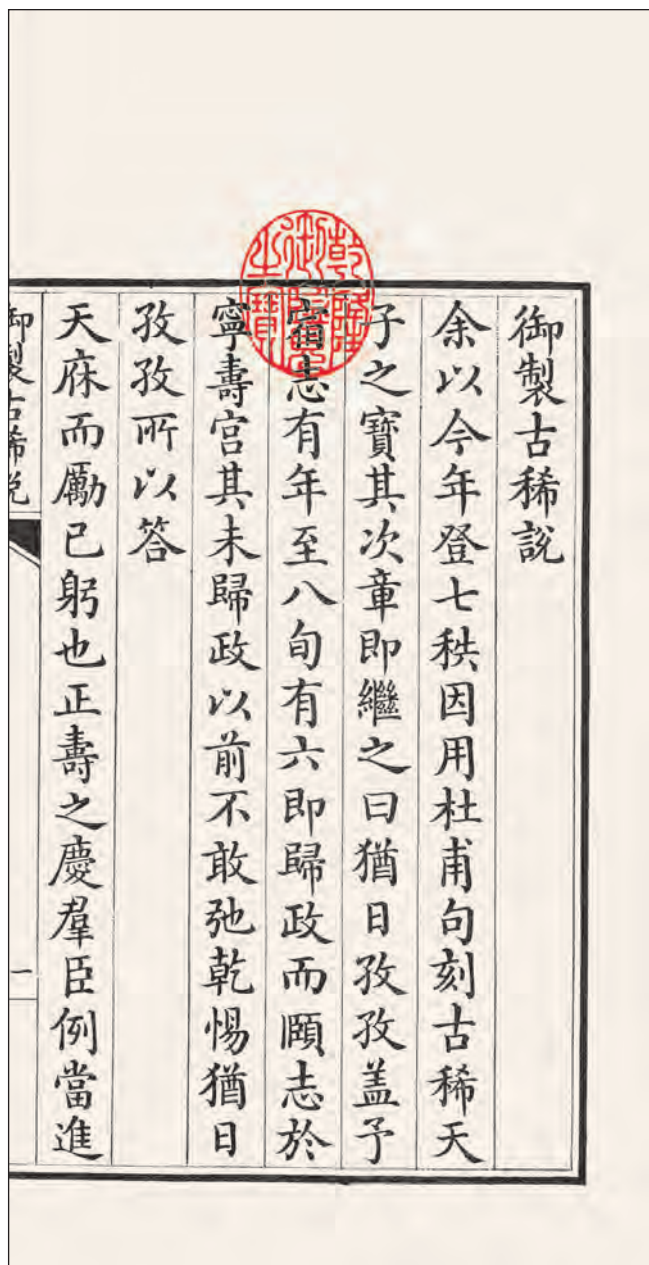 御製古稀說
余以今年登七秩因用杜甫句刻古稀天
子之寶其次章即繼之曰猶日孜孜蓋予
宿志有年至八旬有六即歸政而頤志於
寧壽宮其未歸政以前不敢弛乾惕猶日
孜孜所以答
天庥而勵己躬也正壽之慶羣臣例當進
御製古稀說
一
乾隆御覽之寶